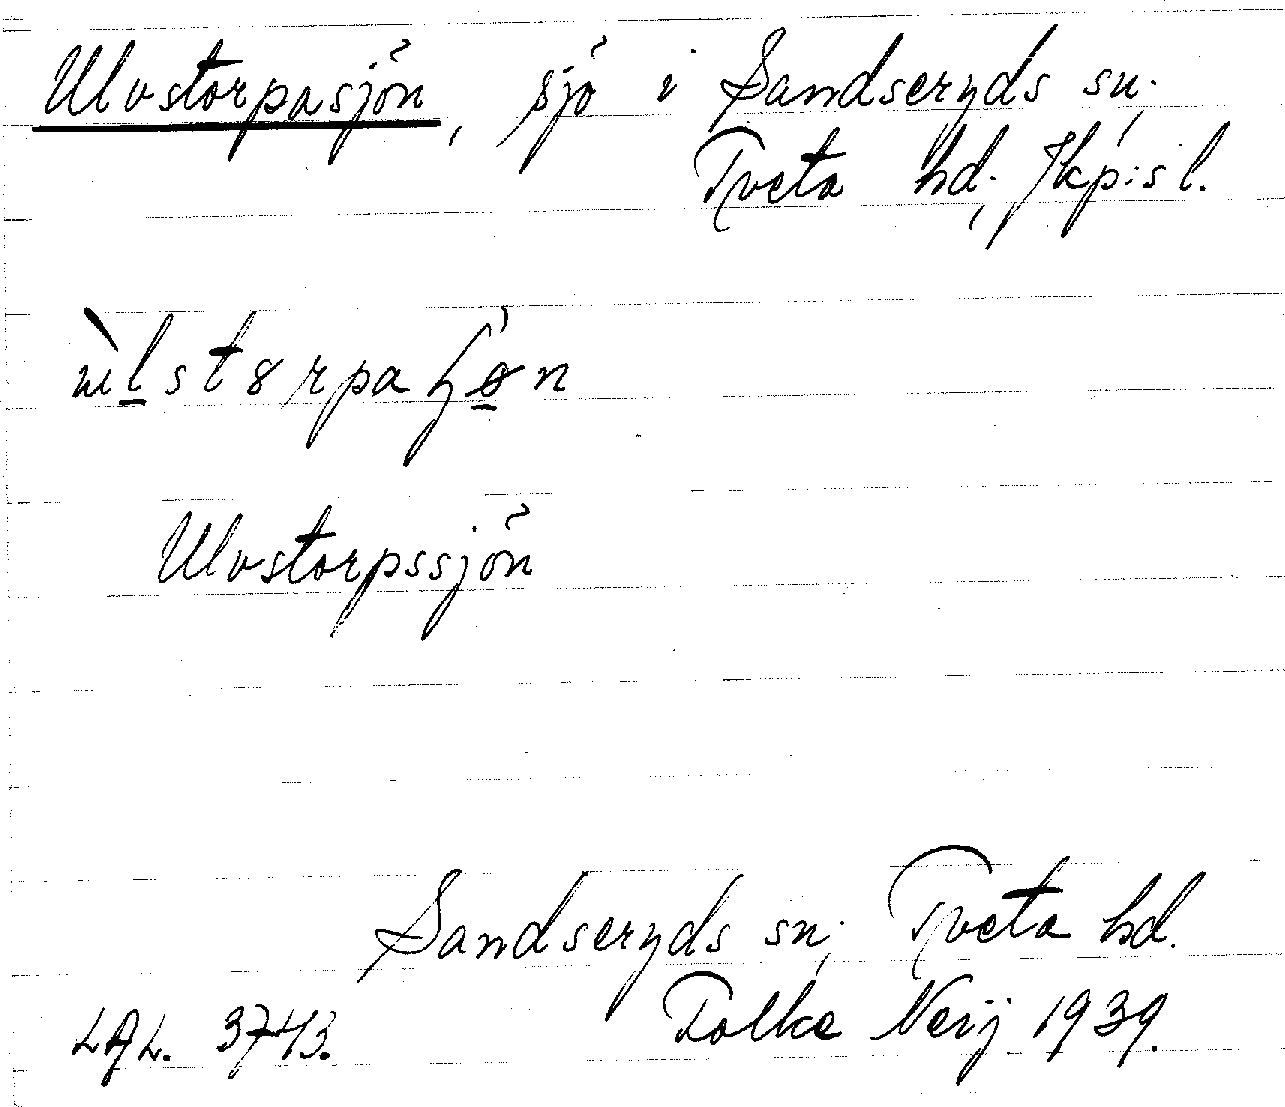 Ulvstorpasjön, sjö i Sandseryds sn.,
Tveta hd., Jkp:s l.
Ulvstorpssjön
Sandseryds sn., Tveta hd.
LAL. 3743. Folke Neij 1939.